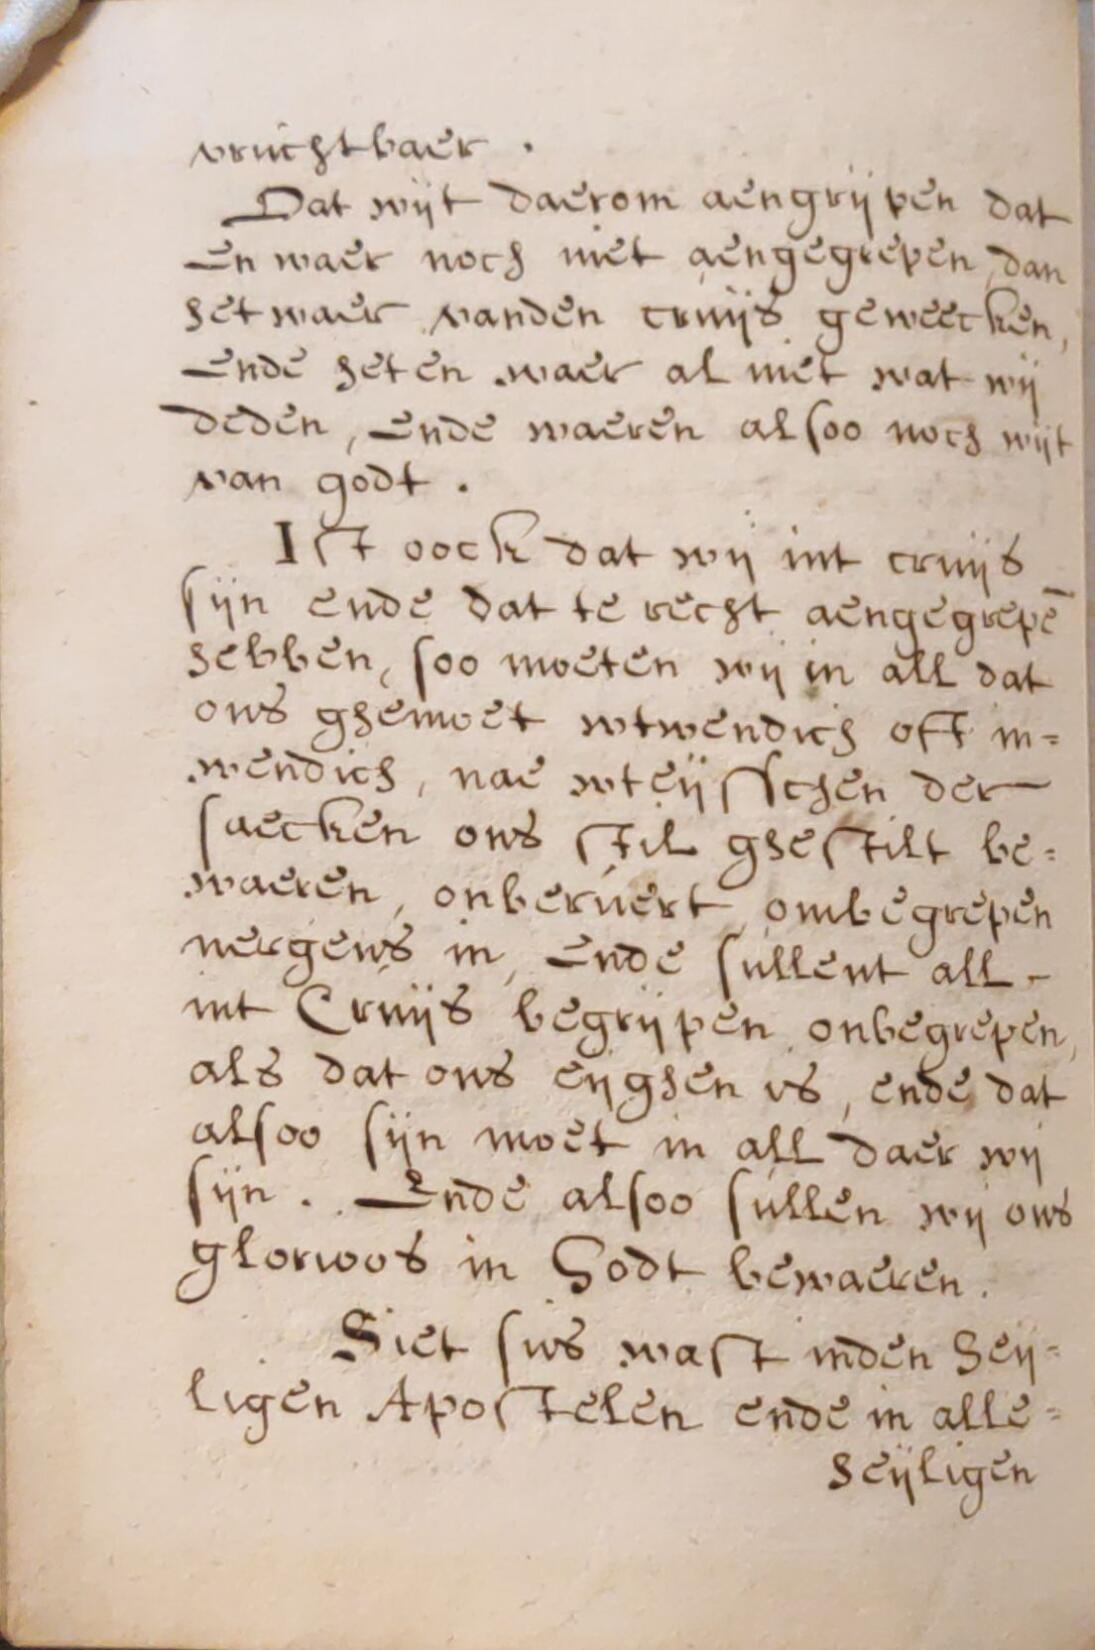 vruchtbaer .
Dat wijt daerom aengrijpen dat
en waer noch niet aengegrepen, dan
het waer vanden cruijs geweecken,
ende het en waer al niet wat wij
deden, ende waeren alsoo noch wijt
van godt .
Ist oock dat wij int cruijs
sijn ende dat te recht aengegrepē
hebben, soo moeten wij in all dat
ons ghemoet wtwendich oft in=
wendich, nae wteijsschen der
saecken ons stil ghestilt be=
waeren, onberuert, ombegrepen
nergens in, ende sullent all-
int Cruijs begrijpen onbegrepen,
als dat ons eijghen is, ende dat
alsoo sijn moet in all daer wij
sijn . Ende alsoo sullen wij ons
glorioos in Godt bewaeren .
Siet sus wast inden heij=
ligen Apostelen ende in alle=
heijligen